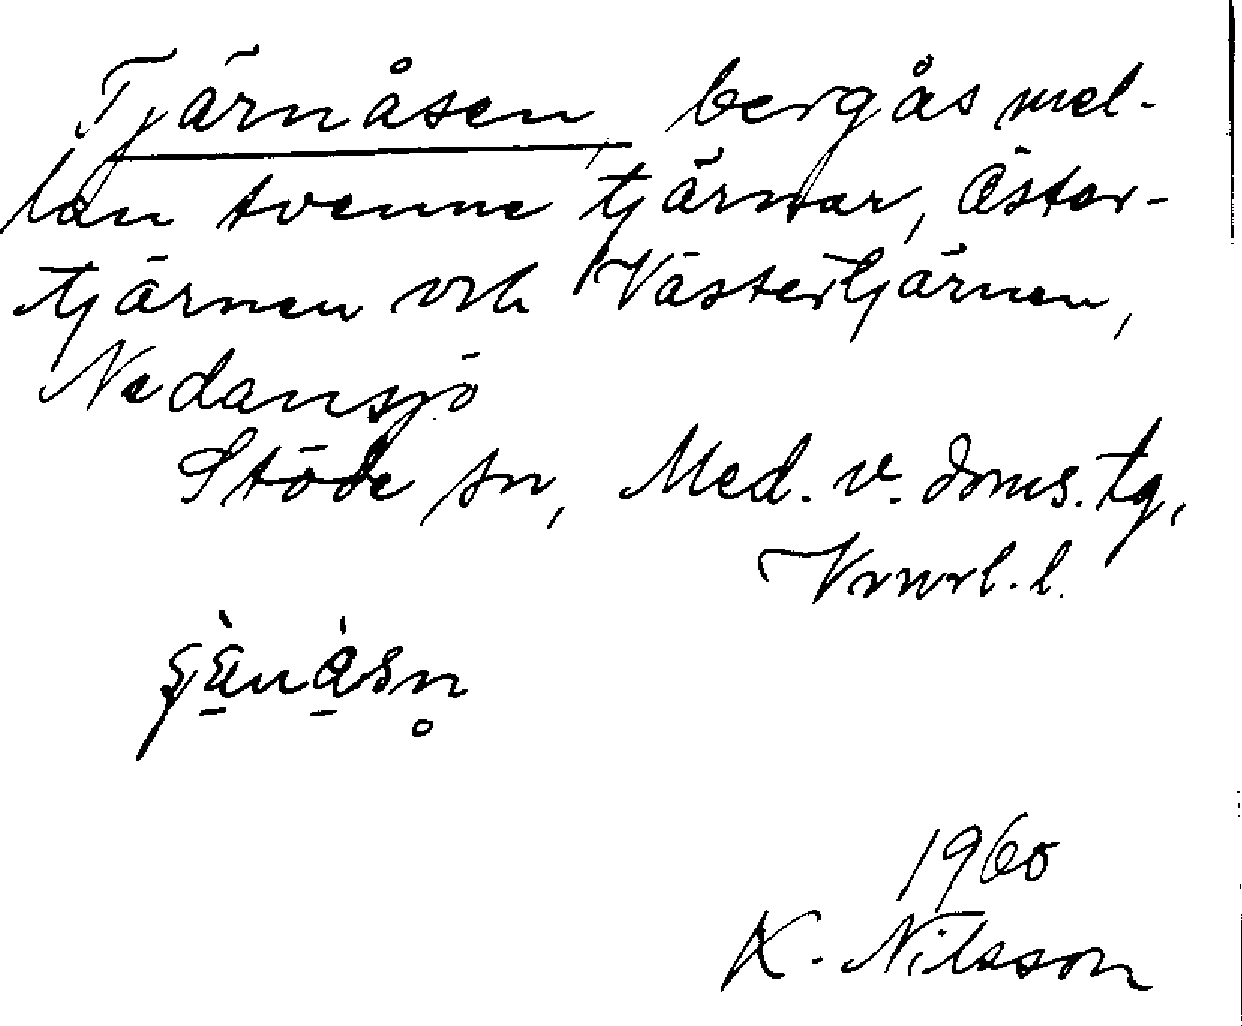 Tjärnåsen, bergås mel-
lan tvenne tjärnar, Öster-
tjärnen och Västertjärnen,
Nedansjö
Stöde sn, Med. v. doms. tg,
Vrnrl. l.
1960
K. Nilsson